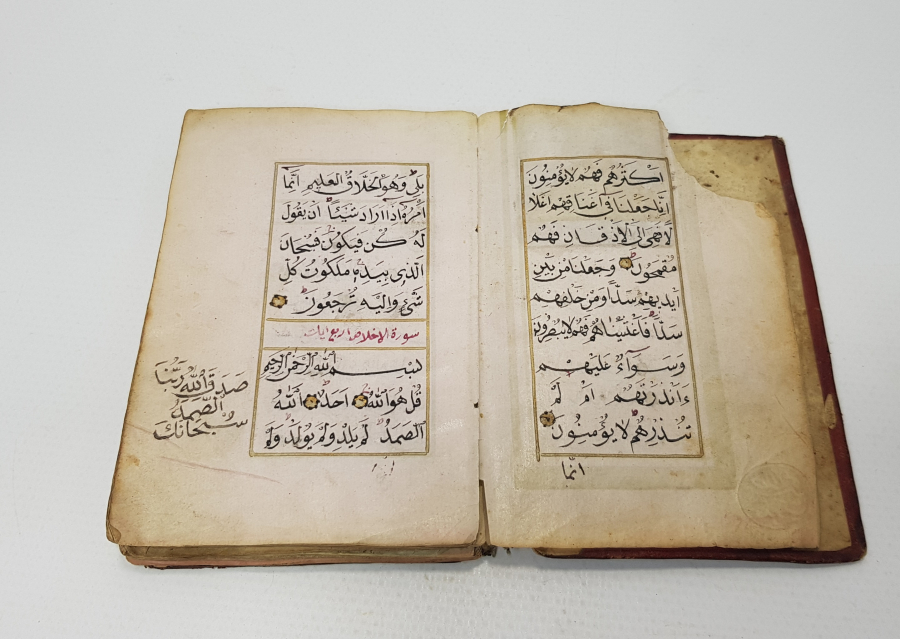 اكثرهم فهم لا يؤمنون
انا جعلنا فى اعناقهم اغلا
لا فهى الى الاذقان فهم
مقمحون وجعلنا من بين
ايديهم سدًا ومن خلفهم
سدًا فاغشيناهم فهم لا يبصرون
وَسَواءٌ عليهم
ءانذرتهم ام لم
تنذرهم لا يؤمنون
انّما
بلى وهو الخلّاق العليم انّما
امره اذا اراد شيئًا ان يقول
له كن فيكون فسبحان
الّذى بيده ملكوت كلّ
شىء واليه ترجعون
سورة الاخلاص اربع ايات
بسم الله الرحمن الرحيم
قُل هو الله احد الله
الصمد لم يلد ولم يولد ولم
صدق الله ربّنا
الصّمد
سبحانك